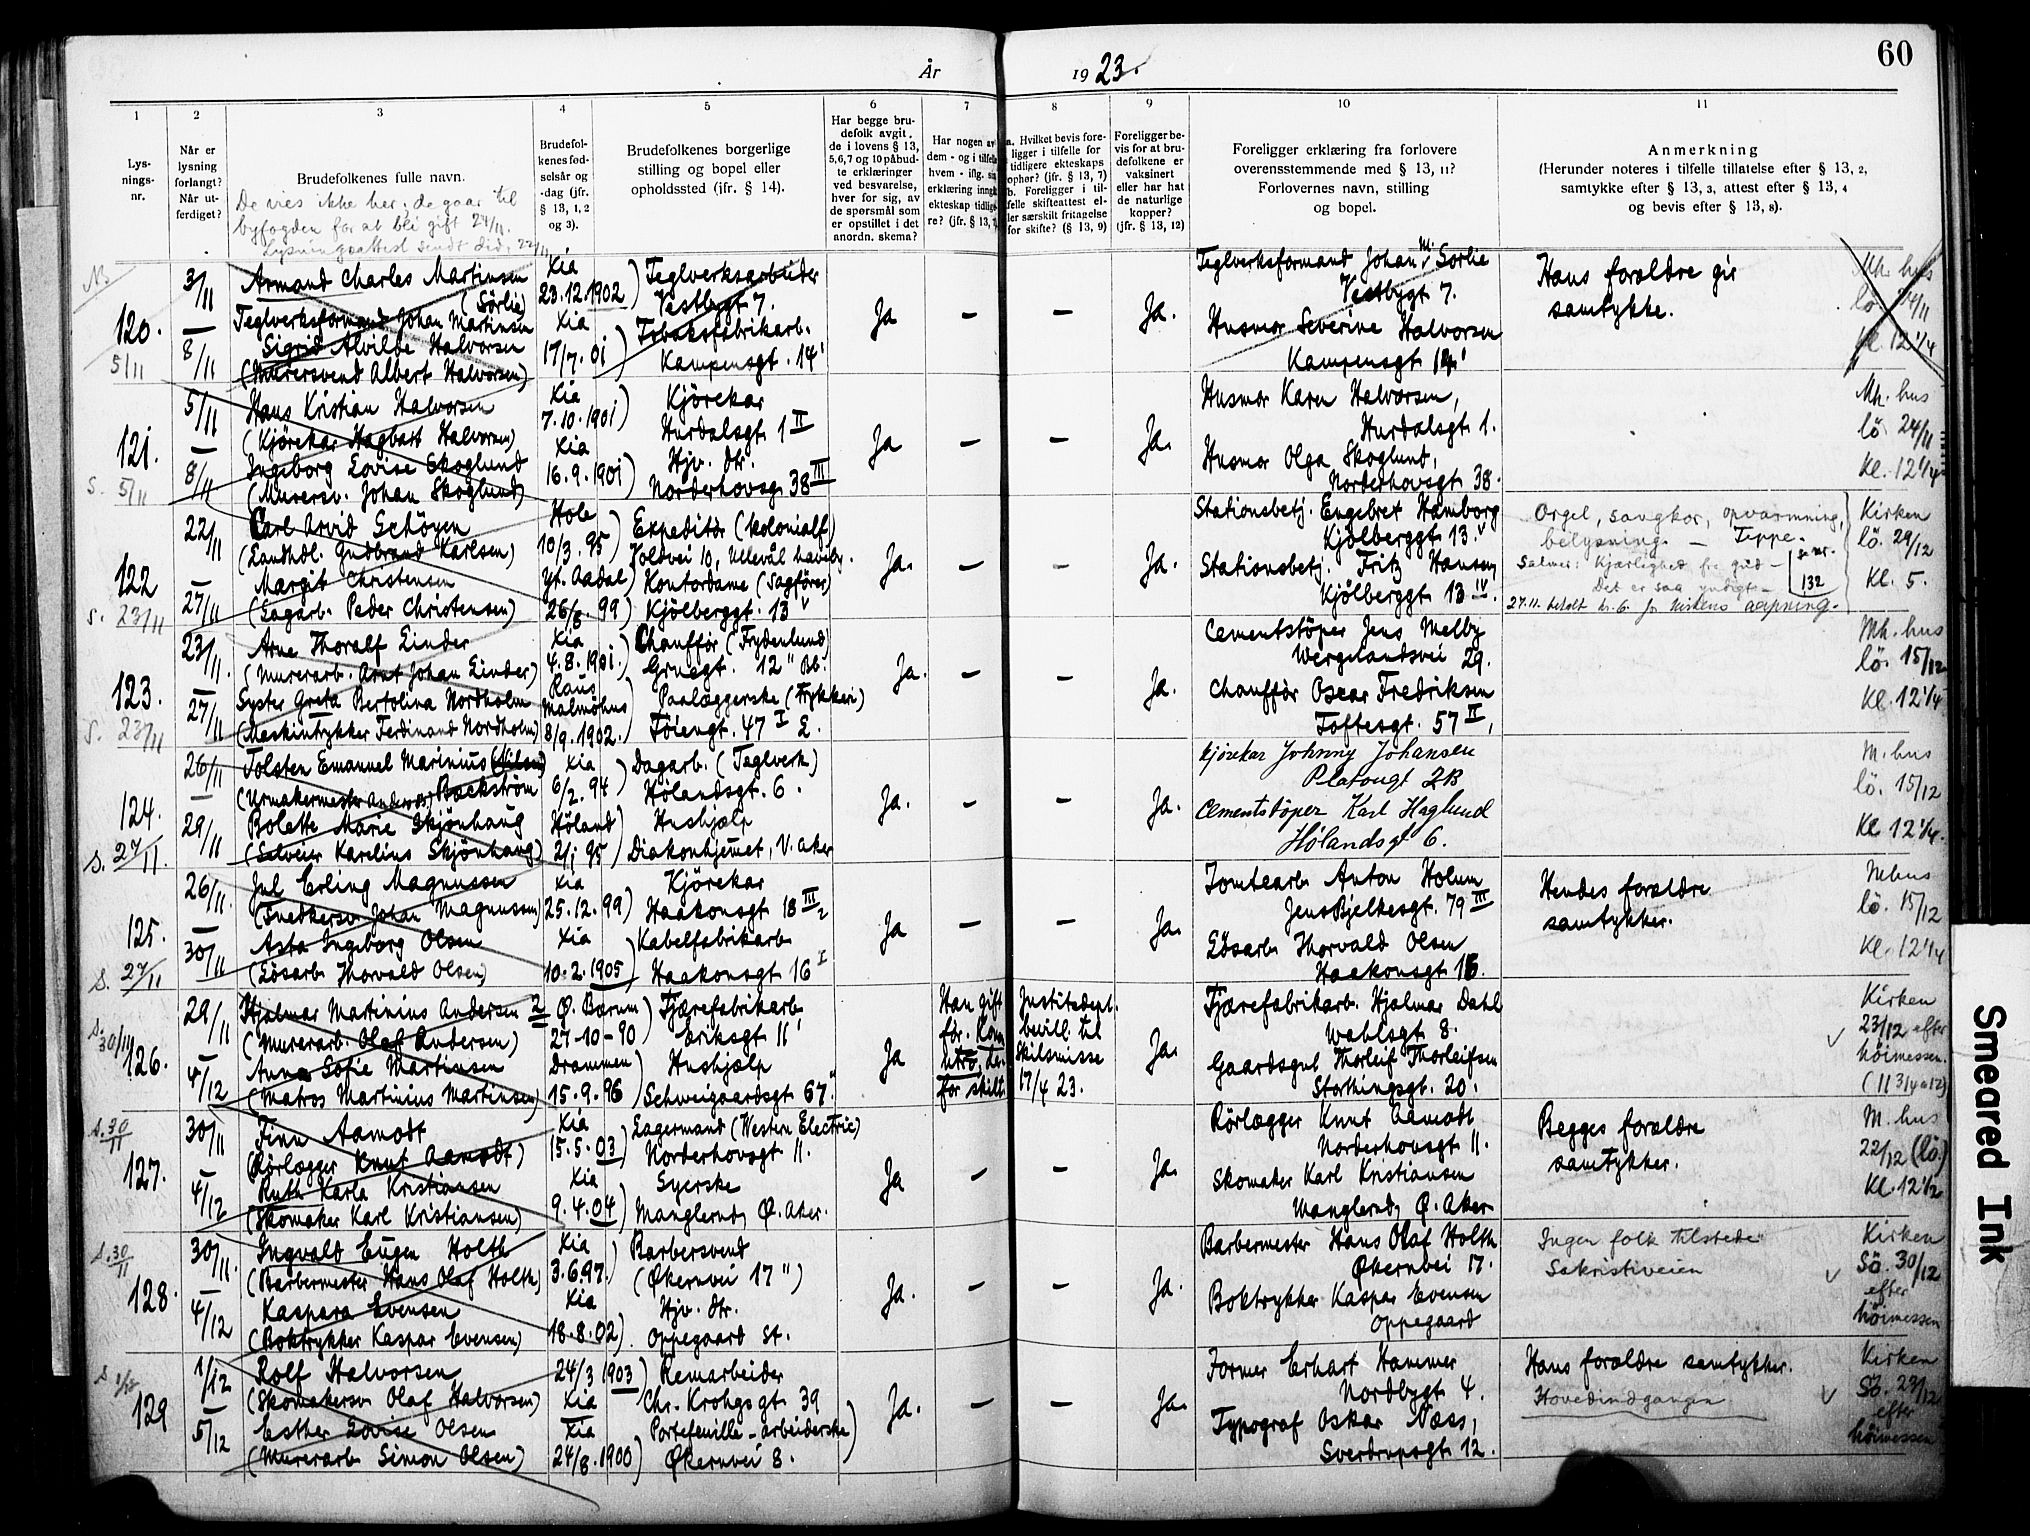 År 1923.
60
1 2 3 4 5 6 7 8 9 10 11
Lys-
nings-
nr.
Når er
lysning
forlangt?
Når ut-
ferdiget?
Brudefolkenes fulle navn.
De vies ikke her; de gaar til
byfogden for at bli gift 24/11.
Lysningsattest sendt did. 22/11
Brudefol-
kenes fød-
selsår og
-dag (jfr.
§ 13, 1, 2
og 3).
Brudefolkenes borgerlige
stilling og bopel eller
opholdssted (jfr. § 14).
Har begge bru-
defolk avgit
de i lovens § 13,
5,6,7 og 10 påbud-
te erklæringer
ved besvarelse,
hver for sig, av
de spørsmål som
er opstillet i det
anordn. skema?
Har nogen av
dem - og i tilfelle
hvem - iflg. sin
erklæring inngått
ekteskap tidlige-
re? (jfr. § 13,
a. Hvilket bevis fore-
ligger i tilfelle for
tidligere ekteskaps
ophør? (jfr. § 13, 7)
b. Foreligger i til-
felle skifteattest el-
ler særskilt fritagelse
for skifte? (§ 13, 9)
Foreligger be-
vis for at bru-
defolkene er
vaksinert
eller har hat
de naturlige
kopper?
(jfr. § 13, 12)
Foreligger erklæring fra forlovere
overensstemmende med § 13, 11?
Forlovernes navn, stilling
og bopel.
Anmerkning
(Herunder noteres i tilfelle tillatelse efter § 13, 2,
samtykke efter § 13, 3, attest efter § 13, 4
og bevis efter § 13, 8).
NB
120.
5/11
3/11
8/11
Armand Charles Martinsen
(Sörlie)
Teglverksformand Johan Martinsen
Sigrid Alvilde Halvorsen
(Murersvend Albert Halvorsen)
Kia
23.12.1902
Kia
17/7.01
Teglverksarbeider
Vestbygt 7.
Tobaksfabrikarb.
Kampensgt. 14'
Ja – – Ja.
Teglverksformand Johan M. Sörlie
Vestbygt 7.
Husmor Severine Halvorsen
Kampensgt 14'
Hans forældre gir
samtykke.
Mh. hus
lö. 24/11
Kl. 12 1/4
121.
S. 5/11
5/11
8/11
Hans Kristian Halvorsen
(Kjörekar Hagbart Halvorsen)
Ingeborg Lovise Skoglund
(Murersv. Johan Skoglund)
Kia
7.10.1901
Kia
16.9.1901
Kjörekar
Hurdalsgt. 1 II
Hjv. dtr.
Norderhovsg. 38 III
Ja – – Ja.
Husmor Karen Halvorsen,
Hurdalsgt. 1.
Husmor Olga Skoglund,
Norderhovsgt 38.
Mh. hus
lö. 24/11
Kl. 12 1/4
122
S. 23/11
22/11
27/11
Carl Arvid Schöyen
(Landhdl. Gudbrand Karlsen)
Margit Christensen
(Sagarb. Peder Christensen)
Hole
10/3. 95
Yt. Aadal
26/8. 99
Expeditör (Kolonialf.)
Joldvei 10, Ullevål haveby.
Kontordame (Sagförer)
Kjölberggt. 13 V
Ja. – – Ja.
Stationsbetj. Engebret Hamborg
Kjölberggt 13. V
Stationsbetj. Fritz Hansen
Kjölberggt 13 IV.
Orgel, sangkor, opvarmning,
belysning. – Teppe.
Salmer: Kjærlighed fra gud –
Det er saa yndigt – 132
27.11. betalt kr. 6. for kirkens aapning.
Kirken
lö. 29/12
Kl. 5.
123.
S. 23/11
23/11.
27/11
Arne Thoralf Linder
(Murerarb. Arnt Johan Linder)
Syster Greta Bertolina Nordholm
(Maskintrykker Ferdinand Nordholm)
Kia
4.8.1901.
Raus
Malmöhus
8/9.1902.
Chufför (Frydenlund)
Grüegt. 12 " Bb.
Paalæggerske (Trykkeri)
Töiengt. 47 I Ø.
Ja. – – Ja.
Cementstöper Jens Melby
Wergelandsvei 29.
Chaufför Oscar Fredriksen
Toftesgt. 57 II,
Mh. hus
lö. 15/12
Kl. 12 1/4
124.
S. 27/11.
26/11
29/11
Tolsten Emanuel Marinius
(Urmakermester Anders) Backström
Bolette Marie Skjönhaug
(Selveier Karelius Skjönhaug)
Kia
6/2. 94
Höland
2/1 95
Dagarb. (Teglverk)
Hölandsgt. 6.
Hushjælp
Diakonhjemet, V. aker
Ja. – – Ja.
Kjørekar Johnny Johansen
Platougt 2B
Cementstöper Karl Haglund
Hølandsgt 6.
M. hus
lö. 15/12
Kl. 12 1/4.
125.
S. 27/11
26/11.
30/11
Jul Erling Magnussen
(Snedkersv. Johan Magnussen)
Asta Ingeborg Olsen
(Lösarb. Thorvald Olsen)
Kia
25.12.99
Kia
10.2.1905
Kjörekar
Haakonsgt 18 III
Kabelfabrikarb
Haakonsgt 16 I
Ja – – Ja.
Tomtearb Anton Holum
Jens Bjelkesgt. 79 III
Lösarb Thorvald Olsen
Haakonsgt 16.
Hendes forældre
samtykker.
M hus
lö. 15/12
Kl. 12 1/4
126.
S. 30/11
29/11
4/12
Hjalmar Martinius Andersen 2
(Murerarb. Olaf Andersen)
Anna Sofie Martinsen
(Matros Martinius Martinsen)
Ø. Bærum
27-10-90
Drammen
15.9.96
Fjærefabrikarb
Eriksgt 11'
Hushjælp
Schweigaardsgt 67."
Ja
Han gift
før.
for skilt
Justitsdept.
bevill. til
skilsmisse
17/4 23.
Ja.
Fjærefabrikarb. Hjalmar Dahl
Wahlsgt 8.
Gaardsgut Thorleif Thorleifsen
Stortingsgt. 20.
Kirken
23/12 efter
höimessen.
(11 3/4 a 12)
127.
S. 30/11
30/11
4/12
Finn Aamodt
(Rörlægger Knut Aamodt)
Ruth Karla Kristiansen
(Skomaker Karl Kristiansen)
Kia
15.5.03
Kia
9.4.04
Lagermand (Western Electric)
Norderhovsgt 11.
Syerske
Manglerud, Ø. Aker.
Ja – – Ja.
Rörlægger Knut Aamodt
Norderhovsgt 11.
Skomaker Karl Kristiansen
Manglerud, Ø. Aker
Begges forældre
samtykker.
M. hus
22/12 (lö.)
Kl. 12 1/2
128.
S. 30/11
30/11.
4/12
Ingvald Eugen Holth
(Barbermester Hans Olaf Holth)
Kaspara Evensen
(Boktrykker Kaspar Evensen)
Kia
3.6.97.
Kia
18.8.02
Barbersvend
(Økernvei 17 ")
Hjv. dtr.
Oppegaard St.
Ja. – – Ja.
Barbermester Hans Olaf Holth
Økernvei 17.
Boktrykker Kaspar Evensen
Oppegaard
Ingen folk tilstede
Sakristiveien
Kirken
Sö. 30/12
efter
höimessen
129
S 1/12
1/12
5/12
Rolf Halvorsen
(Skomakersv Olaf Halvorsen)
Esther Lovise Olsen
(Murerarb Simon Olsen)
24/3 1903
Kia
Kia
24/8.1900
Remarbeider
Chr. Krohgsgt 39
Portefeuille-arbeiderske
Økernvei 8.
Ja. – – Ja.
Former Erhart Hammer
Nordbygt 4.
Typograf Oskar Næss,
Sverdrupsgt 12.
Hans forældre samtykker.
Hovedindgangen
Kirken
Sö. 29/12
efter
höimessen
Smeared Ink